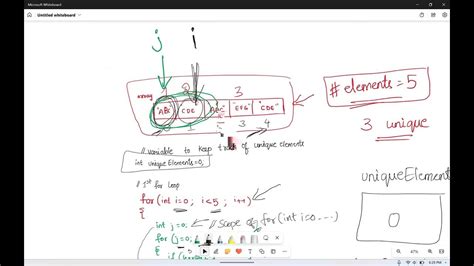 Microsoft Whiteboard
Untitled whiteboard
j i
1 2 3
array
"ABC" "CDE" "ABC" "EFG" "CDE"
1 3 4
# elements = 5
3 unique
// variable to keep track of unique elements
int uniqueElements=0;
uniqueElement
// 1st for loop
for(int i=0; i<5; i++)
{
0
int j=0; // scope of for(int i=0...)
for (j=0;
{
47%
6:29 PM